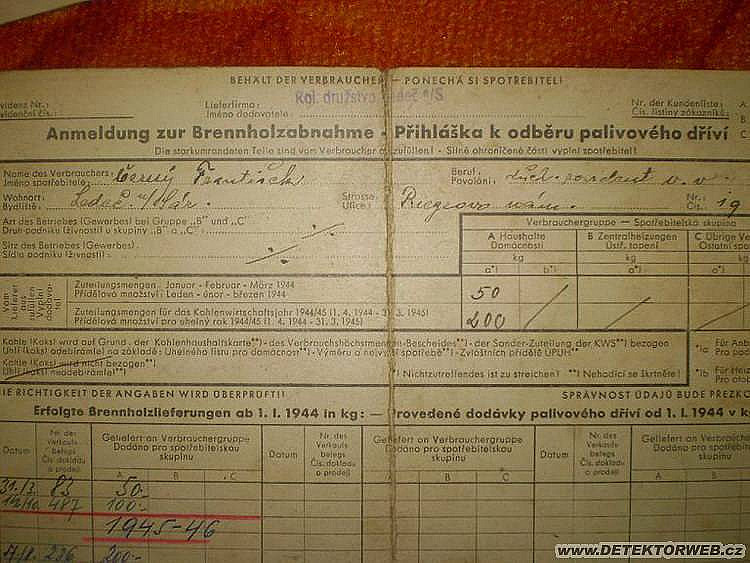 BEHÄLT DER VERBRAUCHER — PONECHÁ SI SPOTŘEBITEL!
videnz Nr.: Lieferfirma: Rol. družstvo Ledeč n/S Nr. der Kundenliste: A
videnční čís.: Jméno dodavatele: Čís. listiny zákazníků: B
C
Anmeldung zur Brennholzabnahme - Přihláška k odběru palivového dříví
Die starkumrandeten Teile sind vom Verbraucher auszufüllen! - Silně ohraničené části vyplní spotřebitel!
Name des Verbrauchers: Černý František Beruf:
Jméno spotřebitele: Povolání:
Wohnort: Ledeč n/Sáz. Strasse: Riegrovo nám. Nr.: 19
Bydliště: Ulice: Čís.:
Art des Betriebes (Gewerbes) bei Gruppe „B" und „C"
Druh podniku (živnosti) u skupiny „B" a „C":
Sitz des Betriebes (Gewerbes):
Sídlo podniku (živnosti):
Verbrauchergruppe — Spotřebitelská skupina
A Haushalte B Zentralheizungen C Übrige Ve
Domácnosti Ústř. topení Ostatní spot
kg kg
a*) b*) a*)
Vom Lieferer auszufüllen
Vyplní dodavatel
Zuteilungsmengen Januar - Februar - März 1944 50
Přídělová množství: Leden - únor - březen 1944
Zuteilungsmengen für das Kohlenwirtschaftsjahr 1944/45 (1. 4. 1944 - 31. 3. 1945) 200
Přídělová množství pro uhelný rok 1944/45 (1. 4. 1944 - 31. 3. 1945)
Kohle (Koks) wird auf Grund der Kohlenhaushaltskarte**) - des Verbrauchshöchstmengen-Bescheides**) - der Sonder-Zuteilung der KWS**) bezogen
Uhlí (koks) odebírám(e) na základě: Uhelného listu pro domácnost**) - Výměru a nejvyšší spotřebě**) - Zvláštních přídělů UPUH**)
Kohle (Koks) wird nicht bezogen**)
Uhlí (koks) neodebírám(e)**) **) Nichtzutreffendes ist zu streichen! **) Nehodící se škrtněte!
*)a Für Anb
Pro pod
*)b Für Heiz
Pro oto
DIE RICHTIGKEIT DER ANGABEN WIRD ÜBERPRÜFT! SPRÁVNOST ÚDAJŮ BUDE PŘEZKO
Erfolgte Brennholzlieferungen ab 1. I. 1944 in kg: — Provedené dodávky palivového dříví od 1. I. 1944 v k
Datum Nr. des Verkaufsbelegs Čís. dokladu o prodeji Geliefert an Verbrauchergruppe Dodáno pro spotřebitelskou skupinu A B C Datum Nr. des Verkaufsbelegs Čís. dokladu o prodeji Geliefert an Verbrauchergruppe Dodáno pro spotřebitelskou skupinu A B C Datum Nr. des Verkaufsbelegs Čís. dokladu o prodeji Geliefert an Verbrau Dodáno pro spotřebi skupinu A B
31./3. 83 50.-
487 100.-
1945-46
236 200.-
www.DETEKTORWEB.cz